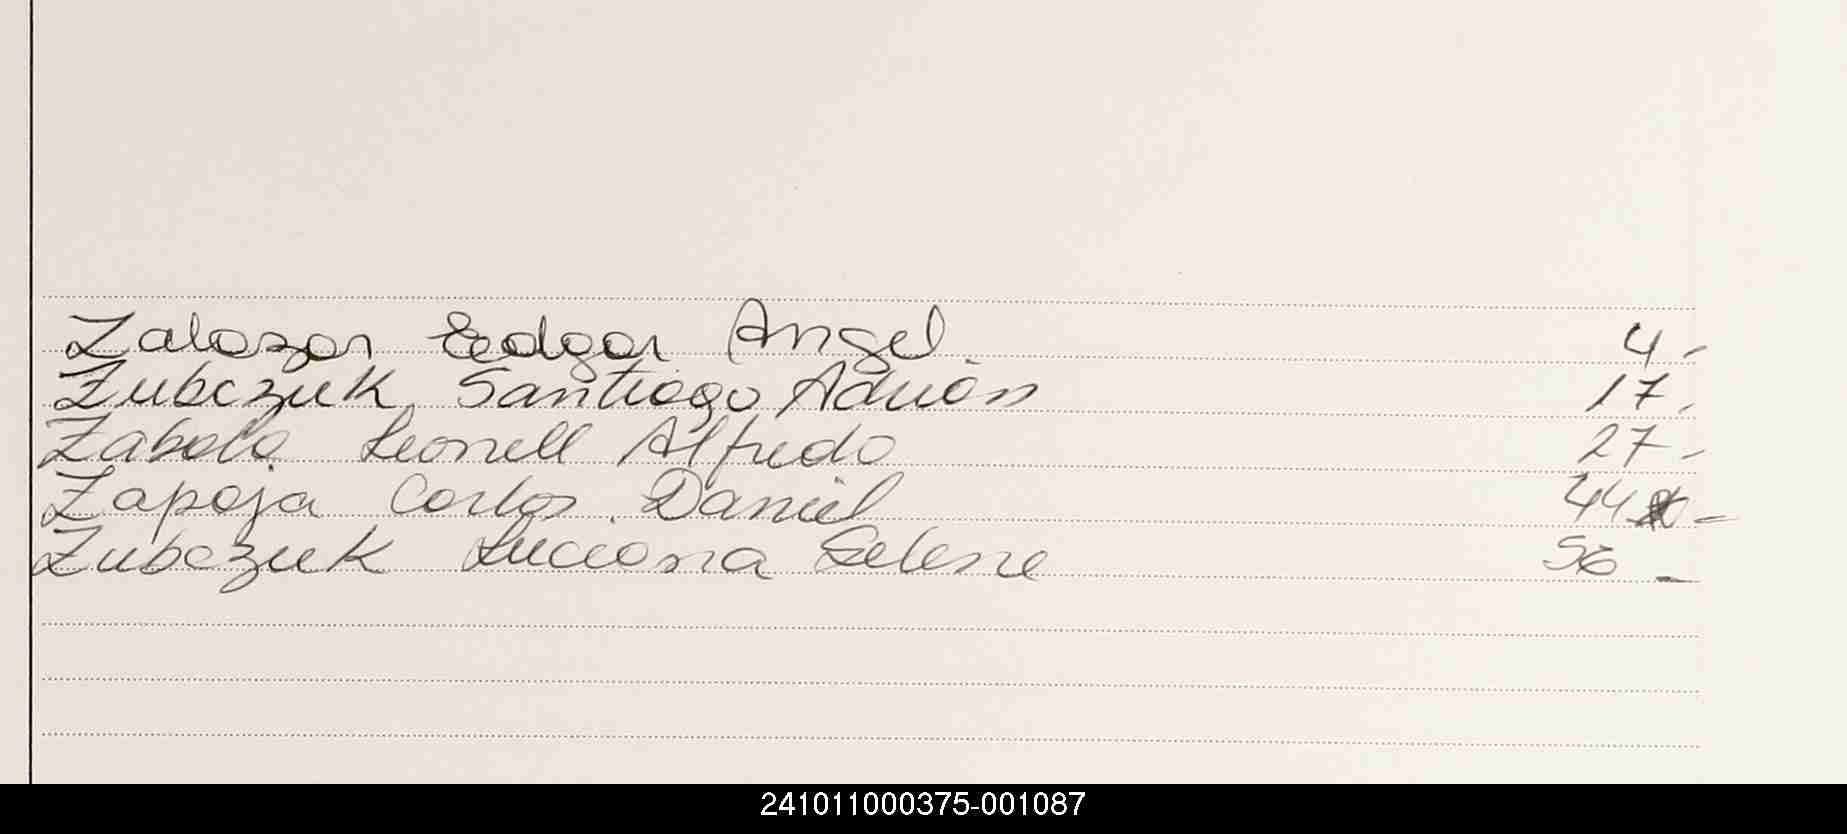 Zalazar Edgar Angel. 4-
Zubczuk Santiago Adrián 17-
Zabala Leonell Alfredo 27-
Zapaja Carlos Daniel 44 -
Zubczuk Luciana Selene 56 -
241011000375-001087